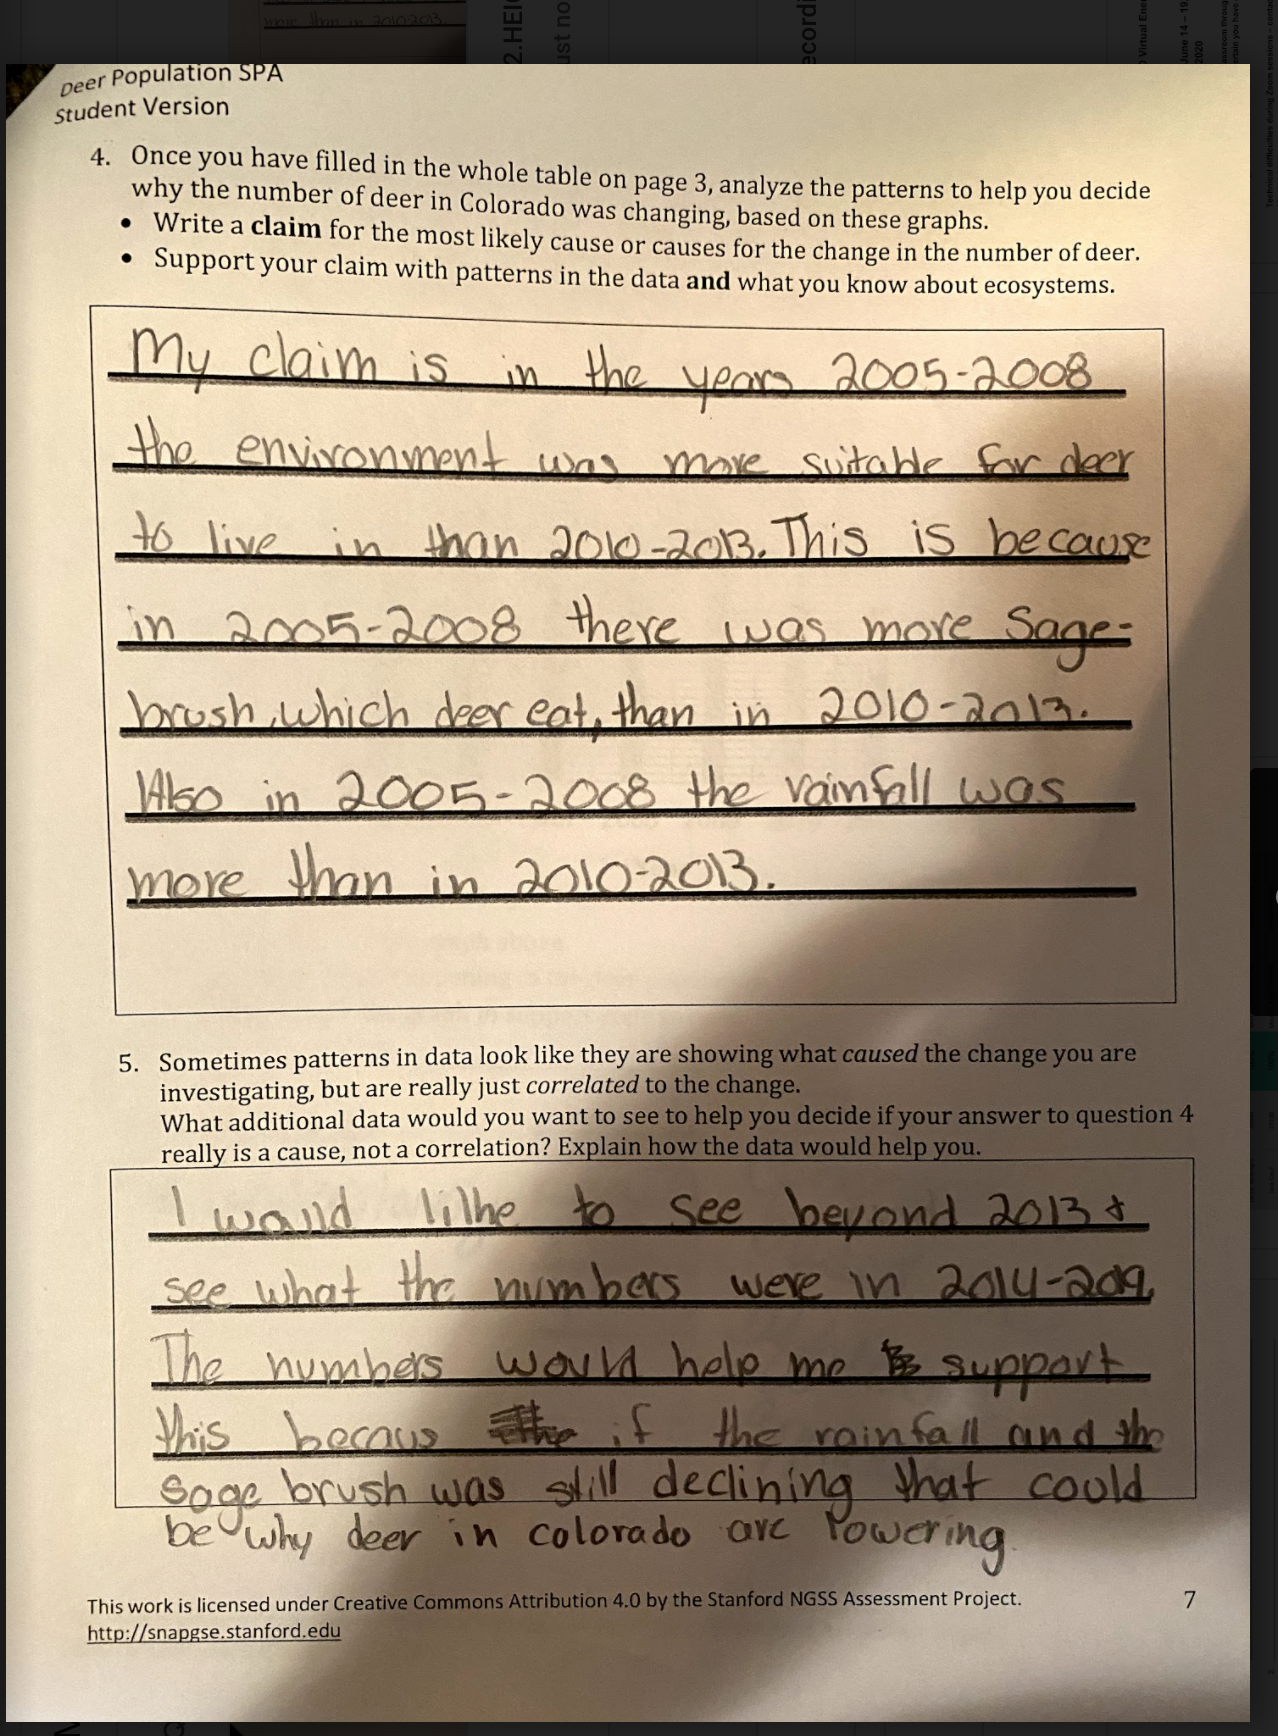 more than in 2010-2013.
2.HEI
ust no
ecordi
Virtual Ener
June 14 – 19,
2020
Deer Population SPA
Student Version
4. Once you have filled in the whole table on page 3, analyze the patterns to help you decide
why the number of deer in Colorado was changing, based on these graphs.
• Write a claim for the most likely cause or causes for the change in the number of deer.
• Support your claim with patterns in the data and what you know about ecosystems.
My claim is in the years 2005-2008
the environment was more suitable for deer
to live in than 2010-2013. This is because
in 2005-2008 there was more Sage-
brush, which deer eat, than in 2010-2013.
Also in 2005-2008 the rainfall was
more than in 2010-2013.
5. Sometimes patterns in data look like they are showing what caused the change you are
investigating, but are really just correlated to the change.
What additional data would you want to see to help you decide if your answer to question 4
really is a cause, not a correlation? Explain how the data would help you.
I would like to see beyond 2013 &
see what the numbers were in 2014-2019.
The numbers would help me support
this becaus if the rainfall and the
sage brush was still declining that could
be why deer in colorado are lowering
This work is licensed under Creative Commons Attribution 4.0 by the Stanford NGSS Assessment Project. 7
http://snapgse.stanford.edu